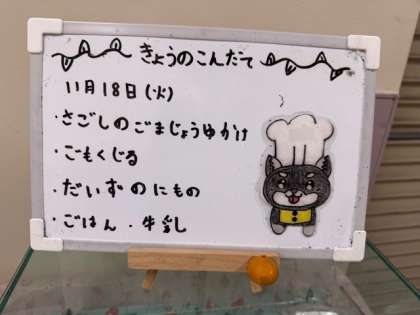 きょうのこんだて
11月18日(火)
・さごしのごまじょうゆかけ
・ごもくじる
・だいずのにもの
・ごはん・牛乳